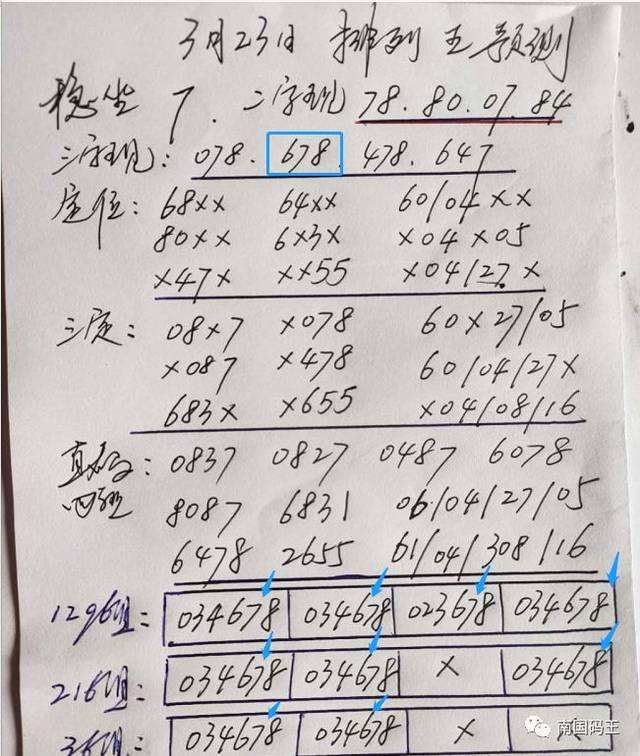 3月23日 排列五预测
稳坐 7. 二字现 78.80.07.84
三字现: 078. 678. 478. 647
定位: 68xx 64xx 60/04xx
80xx 6x3x x04x05
x47x xx55 x04/27x
三定: 08x7 x078 60x27/05
x087 x478 60/04/27x
683x x655 x04/08/16
直码: 0837 0827 0487 6078
8087 6831 06/04/27/05
6478 2655 61/04/308/16
1296组: 034678 034678 023678 034678
216组: 034678 034678 x 034678
36组: 034678 034678 x
南国码王